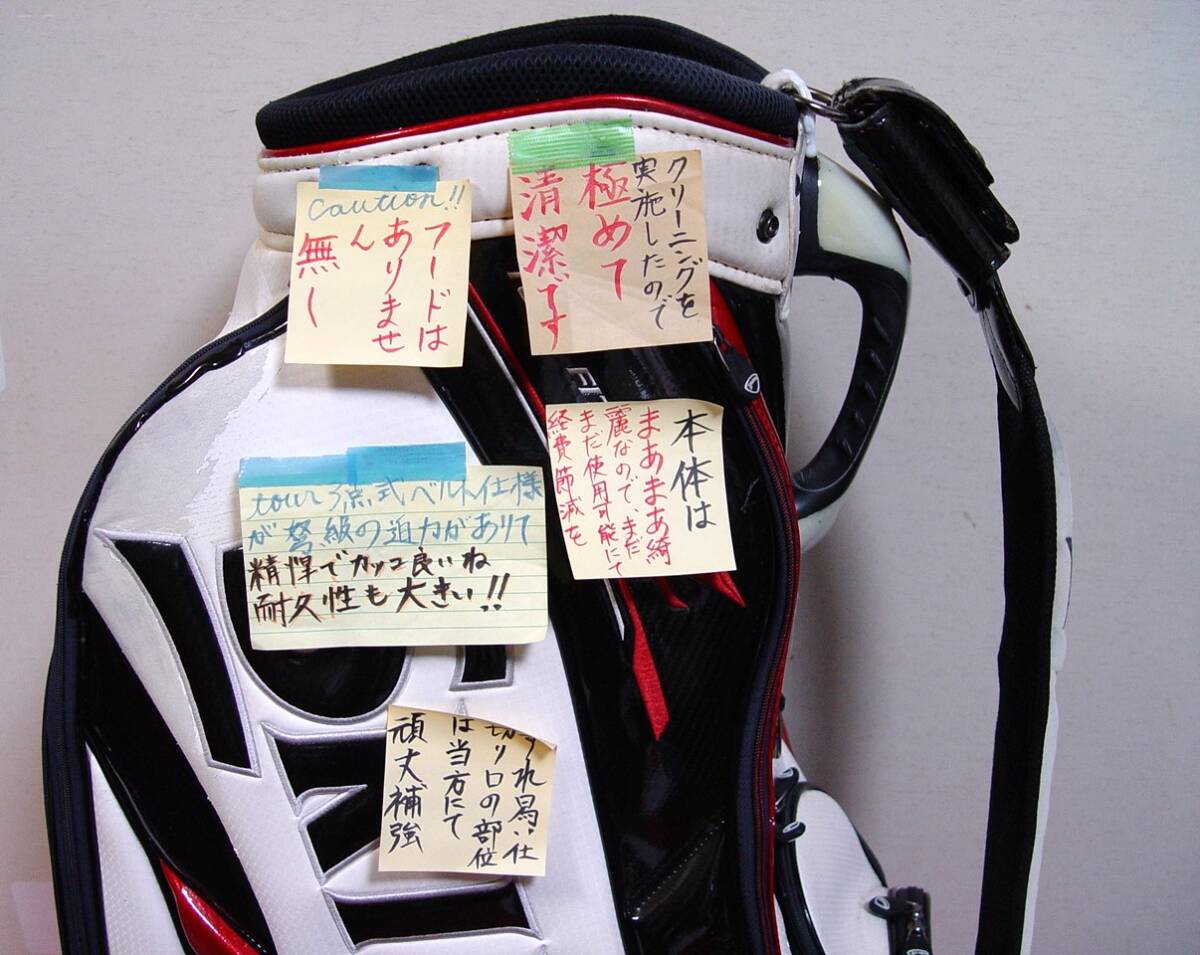 caution!!
フードは
ありませ
ん
無し
クリーニングを
実施したので
極めて
清潔です
本体は
まあまあ綺
麗なので、まだ
まだ使用可能にて
経費節減を
tour 3点式ベルト仕様
が弩級の迫力がありて
精悍でカッコ良いね
耐久性も大きい!!
すれ易い仕
切り口の部位
は当方にて
頑丈補強